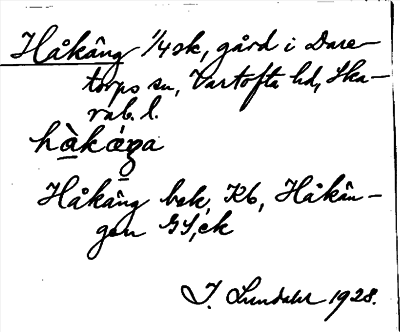 Håkäng 1/4 sk, gård i Dare-
torps sn, Vartofta hd, Ska-
rab. l.
Håkäng bek, Kb, Håkän-
gen GS, ek
I. Lundahl 1928.